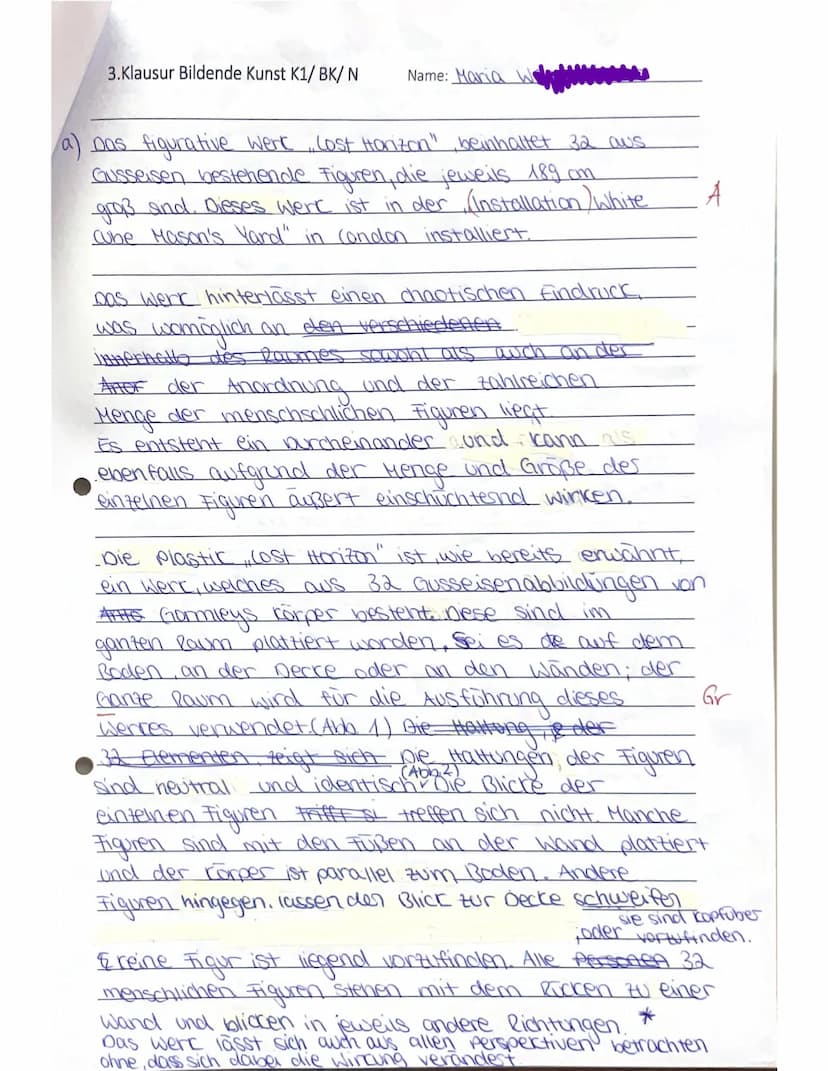 3.Klausur Bildende Kunst K1/ BK/ N Name: Maria W
a) Das figurative Werk „Lost Horizon", beinhaltet 32 aus
Gusseisen bestehende Figuren, die jeweils 189 cm
groß sind. Dieses Werk ist in der „(Installation) White A
Cube Mason's Yard" in London installiert.
Das Werk hinterlässt einen chaotischen Eindruck,
was womöglich an den verschiedenen
innerhalb des Raumes sowohl als auch an der
der Anordnung und der zahlreichen
Menge der menschschlichen Figuren liegt.
Es entsteht ein Durcheinander und kann als
ebenfalls aufgrund der Menge und Größe des
einzelnen Figuren äußert einschüchternd wirken.
Die Plastik „Lost Horizon" ist, wie bereits erwähnt,
ein Werk, welches aus 32 Gusseisenabbildungen von
Gormleys Körper besteht. Diese sind im
ganzen Raum plattiert worden, Sei es auf dem
Boden, an der Decke oder an den Wänden; der
Ganze Raum wird für die Ausführung dieses Gr
Werkes verwendet. (Abb 1) Die Haltung, der
32 Elementen, zeigt sich Die Haltungen, der Figuren
sind neutral und identisch. (Abb 2) Die Blicke der
einzelnen Figuren trifft si treffen sich nicht. Manche
Figuren sind mit den Füßen an der Wand plattiert
und der Körper ist parallel zum Boden. Andere
Figuren hingegen, lassen den Blick zur Decke schweifen
, oder sie sind kopfüber vorzufinden.
Keine Figur ist liegend vorzufinden. Alle Personen 32
menschlichen Figuren stehen mit dem Rücken zu einer
Wand und blicken in jeweils andere Richtungen. *
Das Werk lässt sich auch aus allen Perspektiven betrachten
ohne, dass sich dabei die Wirkung verändest.